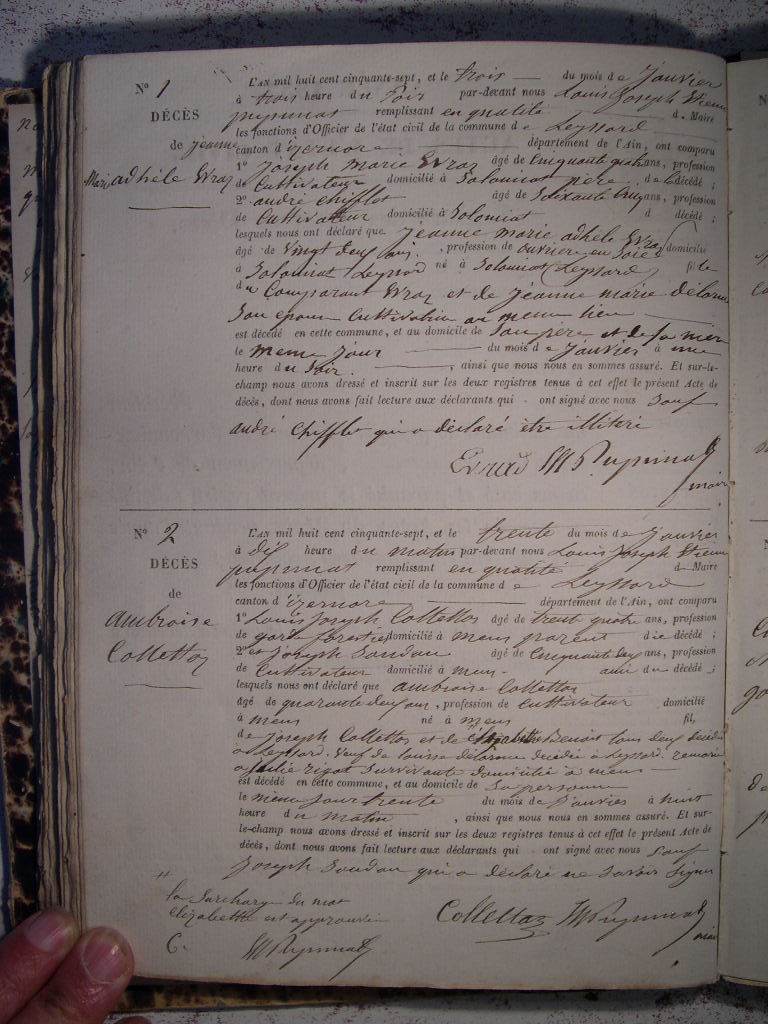 N° 1
DÉCÈS
de jeanne
Marie adhéle Evraz
L'AN mil huit cent cinquante-sept, et le trois du mois de Janvier
à trois heure du Soir par-devant nous Louis Joseph Etienne
pupunat remplissant en qualité de Maire
les fonctions d'Officier de l'état civil de la commune de Leyssard
canton d'izernore département de l'Ain, ont comparu
1° Joseph Marie Evraz âgé de Cinquante quatre ans, profession
de Cultivateur domicilié à Solomiat père de la décédé ;
2° andré chifflet âgé de Soixante ans, profession
de Cultivateur domicilié à Solomiat d décédé ;
lesquels nous ont déclaré que jeanne marie adhéle Evraz domicilié
âgé de Vingt deux ans, profession de ouvrière en Soie
à Solomiat Leyssard né à Solomiat (Leyssard) fille
du Comparant Evraz et de jeanne marie delorme
Son epouse Cultivatrice au meme lieu
est décédé en cette commune, et au domicile de Son père et de sa mère
le meme jour du mois de Janvier à une
heure du Soir, ainsi que nous nous en sommes assuré. Et sur-le-
champ nous avons dressé et inscrit sur les deux registres tenus à cet effet le présent Acte de
décès, dont nous avons fait lecture aux déclarants qui ont signé avec nous Sauf
andré Chifflet qui a déclaré être illitéré
Pupunat
maire
N° 2
DÉCÈS
de
ambroise
Collettaz
L'AN mil huit cent cinquante-sept, et le trente du mois de Janvier
à Dix heure du matin par-devant nous Louis Joseph Etienne
pupunat remplissant en qualité de Maire
les fonctions d'Officier de l'état civil de la commune de Leyssard
canton d'izernore département de l'Ain, ont comparu
1° Louis Joseph Collettaz âgé de trente quatre ans, profession
de garde forestier domicilié à mens parent du décédé ;
2° et Joseph Soudan âgé de Cinquante ans, profession
de Cultivateur domicilié à mens ami du décédé ;
lesquels nous ont déclaré que ambroise Collettaz
âgé de quarante deux ans, profession de Cultivateur domicilié
à mens né à mens fils,
de Joseph Collettaz et de Elizabethe Benoit tous deux décédés
à Leyssard. Veuf de louise delorme décédée à Leyssard. remarié
a julie rigat Survivante domiciliée à mens
est décédé en cette commune, et au domicile de Sa personne
le meme jour trente du mois de Janvier à huit
heure du matin, ainsi que nous nous en sommes assuré. Et sur-
le-champ nous avons dressé et inscrit sur les deux registres tenus à cet effet le présent Acte de
décès, dont nous avons fait lecture aux déclarants qui ont signé avec nous Sauf
Joseph Soudan qui a déclaré ne Savoir Signer
la Surcharge du mot
Elizabethe est approuvée
Collettaz Pupunat
maire
Pupunat